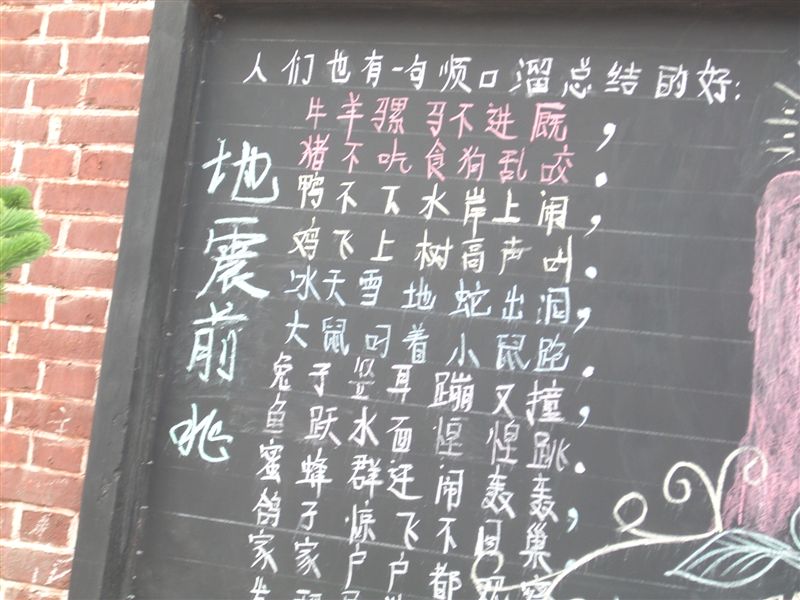 人们也有一句顺口溜总结的好:
地震前兆
牛羊骡马不进厩,
猪不吃食狗乱咬.
鸭不下水岸上闹,
鸡飞上树高声叫.
冰天雪地蛇出洞,
大鼠叼着小鼠跑.
兔子竖耳蹦又撞,
鱼跃水面惶惶跳.
蜜蜂群迁闹轰轰,
鸽子惊飞不回巢.
家家户户都观察